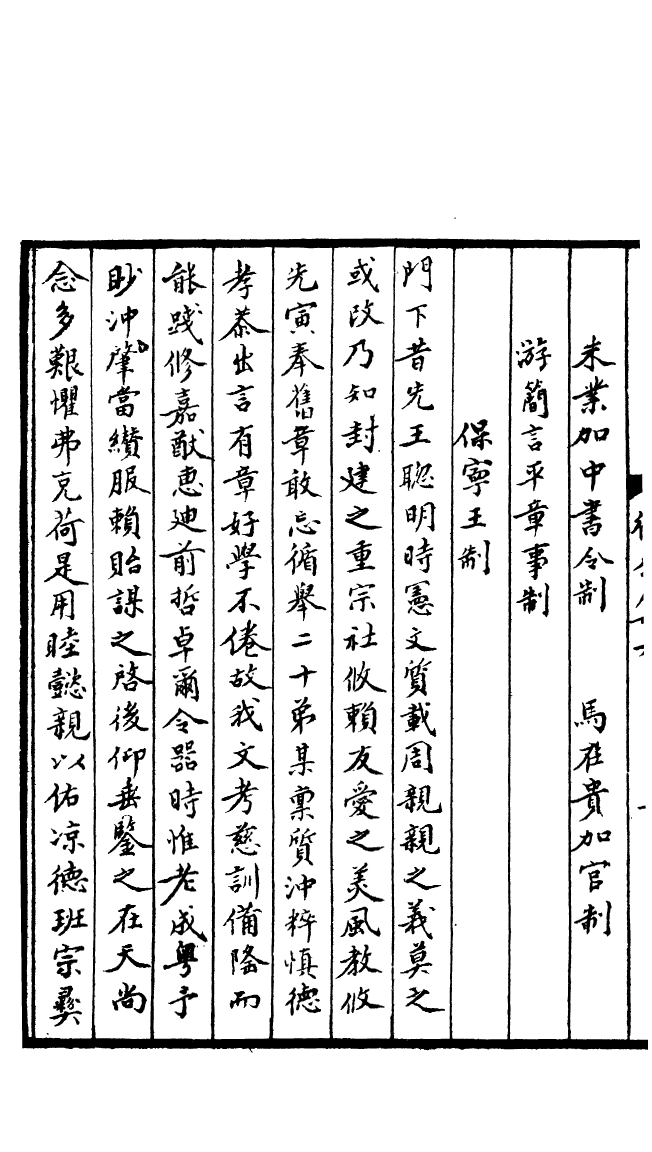 朱業加中書令制　馬在貴加官制
游簡言平章事制
保寧王制
門下昔先王聰明時憲文質載周親親之義莫之
或改乃知封建之重宗社攸賴友愛之美風教攸
先寅奉舊章敢忘循舉二十弟某稟質沖粹慎德
孝恭出言有章好學不倦故我文考慈訓備隆而
能踐修嘉猷惠廸前哲卓爾令器時惟老成粤予
眇沖肇當纉服賴貽謀之啓後仰垂鑒之在天尚
念多艱懼弗克荷是用睦懿親以佑凉德班宗彛